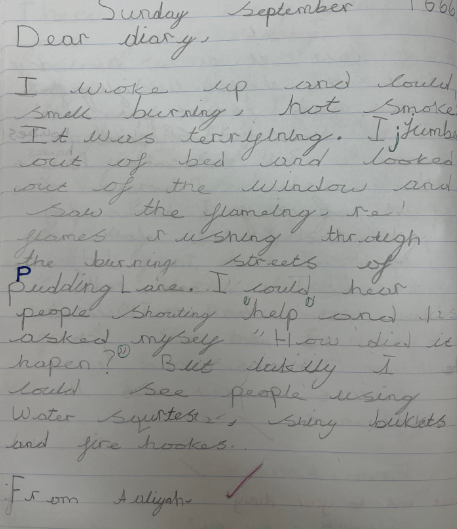 Sunday September 1666
Dear diary,
I woke up and could
smell burning, hot smoke
It was terryining. I jumb
out of bed and looked
out of the window and
saw the flameing, re
flames rushing through
the burning streets of
Pudding Lane. I could hear
people shouting "help" and I
asked mysey "How did it
hapen?" But lukily I
could see people using
Water squrtes, shiny bukets
and fire hookes.
From Aaliyah